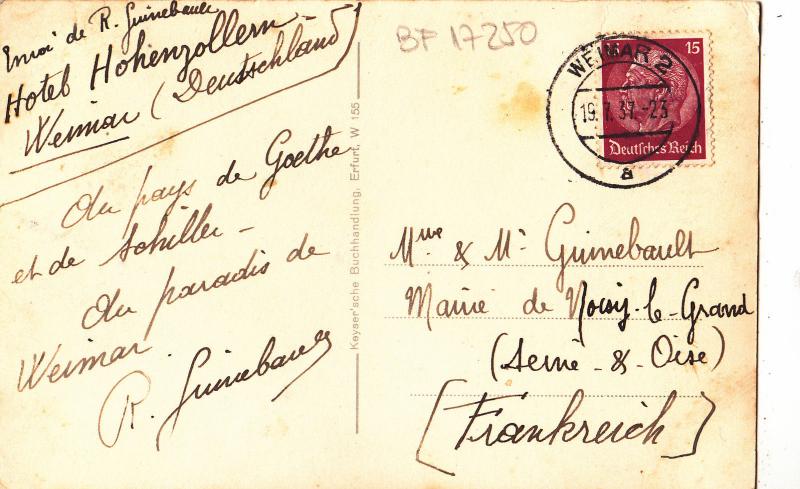 Envoi de R. Guinebault
Hotel Hohenzollern
Weimar (Deutschland)
Au pays de Goethe
et de Schiller -
Au paradis de
Weimar
R. Guinebault
Keyser'sche Buchhandlung, Erfurt, W 155
BF 17250
WEIMAR 2
19.7.37.-23
a
15
Deutsches Reich
Mme & Mr Guinebault
Mairie de Noisy-le-Grand
(Seine-&-Oise)
(Frankreich)